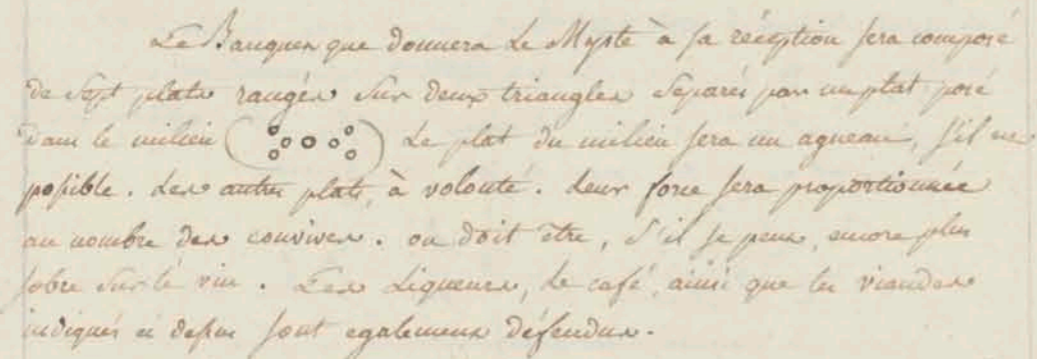 Le Banquet que donnera Le Myste à sa réception sera composé
de Sept plats rangés Sur deux triangles Séparés par un plat posé
dans le milieu ( ) Le plat du milieu sera un agneau, s'il est
possible. Les autres plats, à volonté. Leur force sera proportionnée
au nombre des convives. on doit être, S'il se peut, encore plus
sobre Sur le vin. Les Liqueurs, le café, ainsi que les viandes
indiqués ci dessus sont egalement défendus.